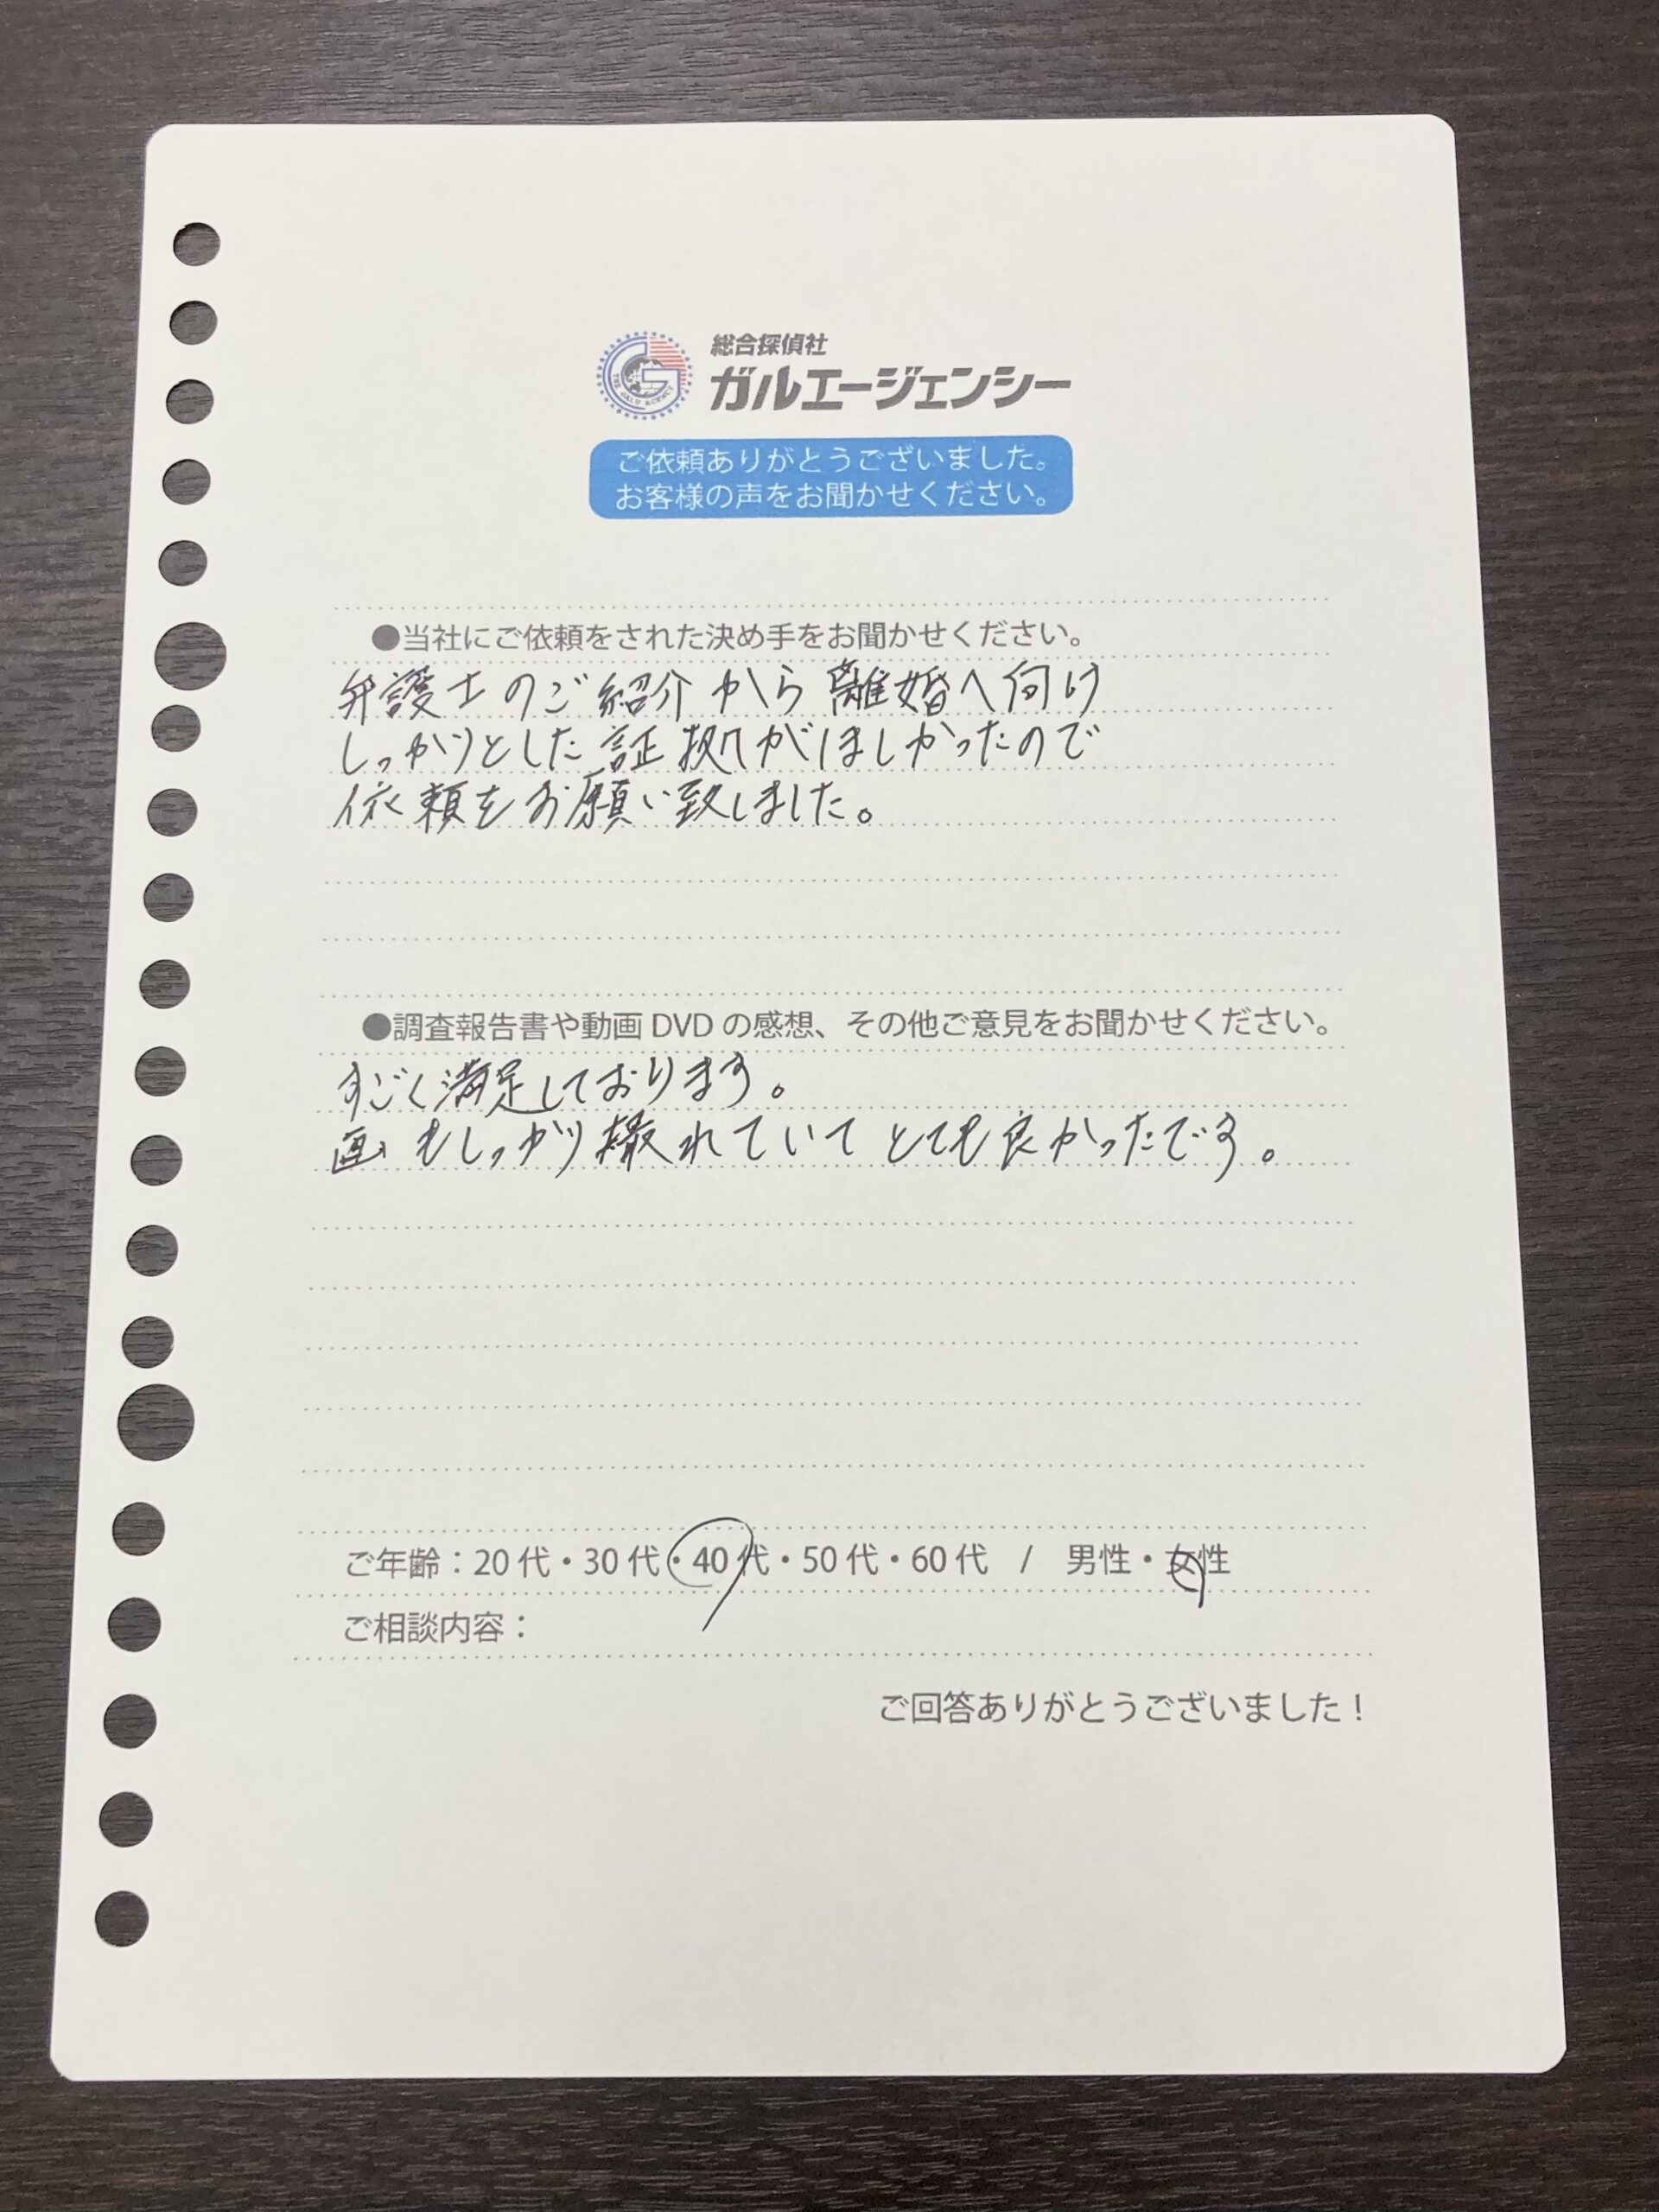 総合探偵社
ガルエージェンシー
THE GALU AGENCY
ご依頼ありがとうございました。
お客様の声をお聞かせください。
●当社にご依頼をされた決め手をお聞かせください。
弁護士のご紹介から離婚へ向け
しっかりとした証拠がほしかったので
依頼をお願い致しました。
●調査報告書や動画 DVD の感想、その他ご意見をお聞かせください。
すごく満足しております。
画もしっかり撮れていてとても良かったです。
ご年齢：20 代・30 代・40 代・50 代・60 代 / 男性・女性
ご相談内容：
ご回答ありがとうございました！